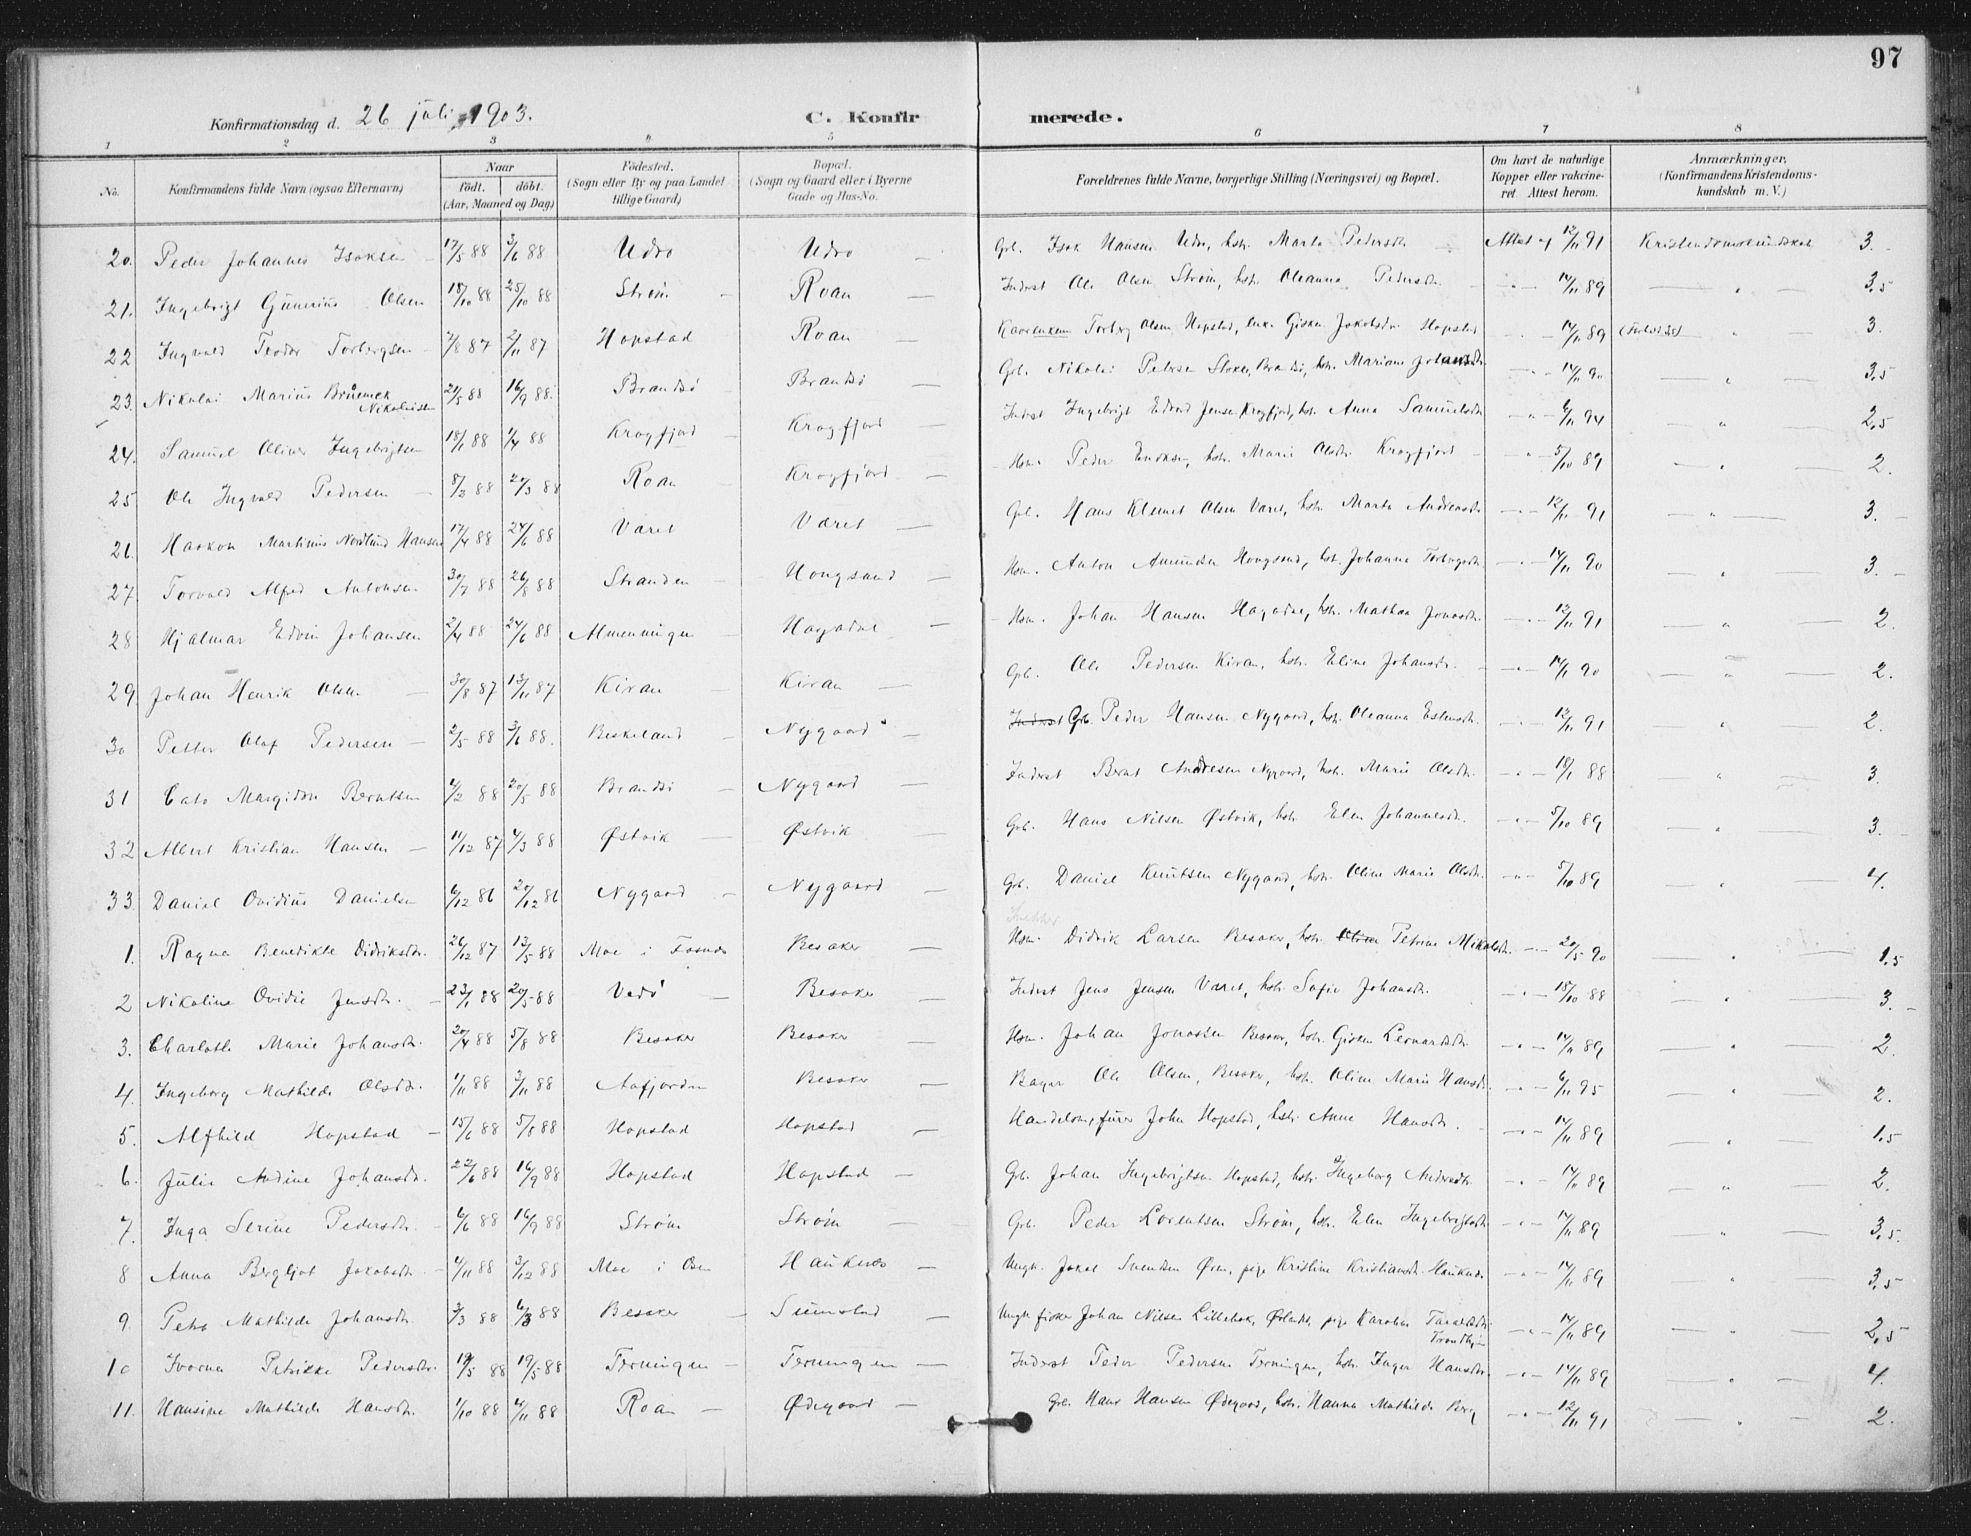 97
Konfirmationsdag d. 26 juli 1903. C. Konfirmerede.
1 2 3 4 5 6 7 8
No. Konfirmandens fulde Navn (ogsaa Efternavn) Naar født. døbt. (Aar, Maaned og Dag) Fødested. (Sogn eller By og paa Landet tillige Gaard) Bopæl. (Sogn og Gaard eller i Byerne Gade og Hus-No. Forældrenes fulde Navne, borgerlige Stilling (Næringsvei) og Bopæl. Om havt de naturlige Kopper eller vakcineret. Attest herom. Anmærkninger. (Konfirmandens Kristendomskundskab m. V.)
20. Peder Johannes Isaksen 17/5 88 3/6 88 Udro Udro Grb. Isak Hansen Udro, hstr. Marta Pedersdtr. Attest af 12/11 91 Kristendomskundskab 3.
21. Ingebrigt Gunerius Olsen 18/10 88 25/10 88 Strøm Roan Inderst Ole Olsen Strøm, hstr. Oleanna Pedersdtr. 14/11 89 3,5
22 Ingvald Teodor Torbergsen 7/8 87 2/11 87 Hopstad Roan Torberg Olsen Hopstad, enke Gisken Jakobsdtr. Hopstad 14/11 89 3.
23. Nikolai Marius Nikolaisen 24/5 88 16/9 88. Brandsø Brandsø Grb. Nikolai Petersen Brandsø, hstr. Mariane 14/11 90 3,5
24. Samuel Oliver Ingebrigtsen 18/1 88 2/4 88 Kragfjord Kragfjord Inderst Ingebrigt Edvard Jensen Kragfjord, hstr. Anna Samuelsdtr. 6/11 94 2,5
25 Ole Ingvald Pedersen 8/3 88 20/3 88 Roan Kragfjord Hsm. Peder hstr. Marie Olsdtr. Kragfjord 5/10 89 2.
26. Haakon Martinus Nordlund Hansen 17/4 88 24/6 88 Varet Varet Grb. Hans Klemet Olsen Varet, hstr. Marta Andreasdtr. 12/11 91 3.
27. Torvald Alfred Antonsen 30/7 88 26/8 88 Stranden Hongsand Hsm. Anton Amundsen Hongsand, hstr. Johanna Torbergsdtr. 14/11 90 3.
28 Hjalmar Edvin Johansen 2/4 88 24/6 88 Almenningen Hagadal Hsm. Johan Hansen Hagadal, hstr. Mathea Jonasdtr. 12/11 91 2.
29 Johan Henrik Olsen 30/8 87 13/11 87 Kiran Kiran Grb. Ole Pedersen Kiran, hstr. Eline Johansdtr. 14/11 90 2.
30 Petter Olaf Pedersen 2/5 88 3/6 88. Beskeland Nygaard Inderst Grb. Peder Hansen Nygaard, hstr. Oleanna Estensdtr. 12/11 91 2.
31 Cato Margido Berntsen 4/2 88 20/5 88 Brandsø Nygaard Inderst Bernt Andresen Nygaard, hstr. Marie Olsdtr. 18/1 88 3.
32 Albert Kristian Hansen 11/12 87 4/3 88 Østvik Østvik Grb. Hans Nilsen Østvik, hstr. Elen Johannesdtr. 5/10 89 3.
33. Daniel Ovidius Danielsen 6/12 86 20/12 86 Nygaard Nygaard Grb. Daniel Knutsen Nygaard, hstr. Oline Marie Olsdtr. 5/10 89 4.
1. Ragna Benedikte Didriksdtr. 26/12 87 13/5 88 Moe i Fosnes Besaker Hsm. Didrik Larsen Besaker, hstr. Petrine Mikalsdtr. 20/5 90 1,5
2 Nikoline Ovidie Jensdtr. 23/1 88 20/5 88 Vedø Besaker Inderst Jens Jensen Varet, hstr. Sofie Johansdtr. 18/10 88 3.
3. Charlotte Marie Johansdtr. 20/4 88 5/8 88 Besaker Besaker Hsm. Johan Jonassen Besaker, hstr. Gisken Leonardsdtr. 14/11 89 2.
4. Ingeborg Mathilde Olsdtr. 1/11 88 3/11 88 Aafjorden Besaker Bager Ole Olsen, Besaker, hstr. Oline Marie Hansdtr. 6/11 95 2.
5. Alfhild Hopstad 15/6 88 5/8 88 Hopstad Hopstad John Hopstad, hstr. Anne Hansdtr. 14/11 89 1,5
6. Julie Andine Johansdtr. 22/6 88 16/9 88 Hopstad Hopstad Grb. Johan Ingebrigtsen Hopstad, hstr. Ingeborg Andersdtr. 14/11 89 2.
7. Inga Serine Pedersdtr. 6/6 88 16/9 88 Strøm Strøm Grb. Peder Lorentsen Strøm, hstr. Elen Ingebrigtsdtr. 14/11 89 3,5.
8 Anna Bergljot Jakobsdtr. 4/11 88 3/12 88 Moe i Osen Hauknes Ungk. Jakob Svendsen pige Kristine Kristiansdtr. Hauknes 14/11 89 3,5
9. Petra Mathilde Johansdtr. 3/3 88 6/3 88 Besaker Sumstad Ungk. fisker Johan Nilsen pige Karoline Trondhjem 14/11 89 2,5
10 Ivarna Petrikke Pedersdtr. 19/5 88 19/5 88 Terningen Terningen Inderst Peder Pedersen Terningen, hstr. Inger Hansdtr. 14/11 89 4.
11. Hansine Mathilde Hansdtr. 1/10 88 4/11 88 Roan Ødegaard Grb. Hans Hansen Ødegaard, hstr. Hanna Mathilde Berg 12/11 91 2.